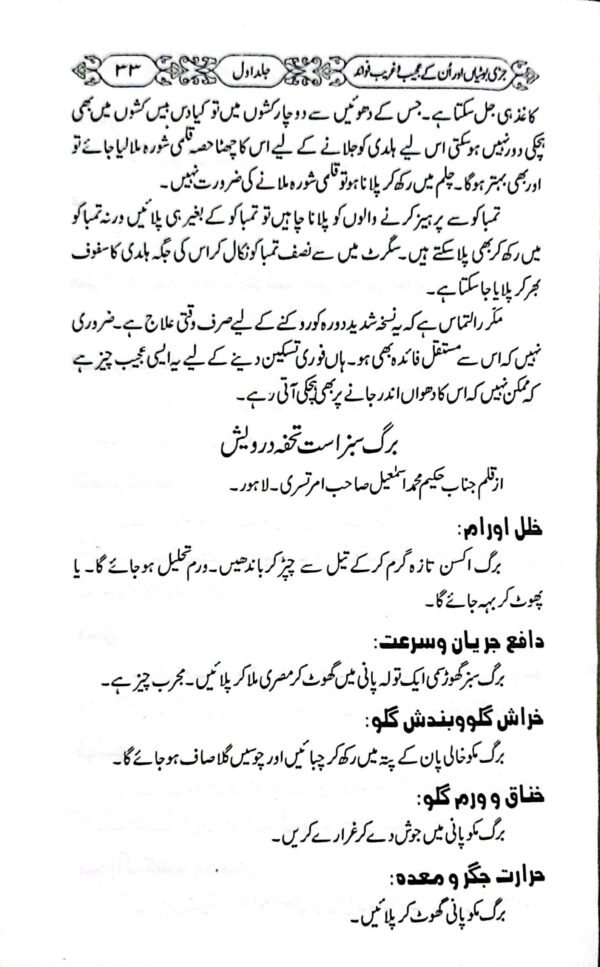 جڑی بوٹیاں اور اُن کے عجیب و غریب فوائد جلد اول ۳۳
کاغذ ہی جل سکتا ہے۔ جس کے دھوئیں سے دو چار کشوں میں تو کیا دس بیس کشوں میں بھی
ہچکی دور نہیں ہو سکتی اس لیے ہلدی کو جلانے کے لیے اس کا چھٹا حصہ قلمی شورہ ملا لیا جائے تو
اور بھی بہتر ہوگا۔ چلم میں رکھ کر پلانا ہو تو قلمی شورہ ملانے کی ضرورت نہیں۔
تمباکو سے پرہیز کرنے والوں کو پلانا چاہیں تو تمباکو کے بغیر ہی پلائیں ورنہ تمباکو
میں رکھ کر بھی پلا سکتے ہیں۔ سگرٹ میں سے نصف تمباکو نکال کر اس کی جگہ ہلدی کا سفوف
بھر کر پلایا جا سکتا ہے۔
مکرر التماس ہے کہ یہ نسخہ شدید دورہ کو روکنے کے لیے صرف وقتی علاج ہے۔ ضروری
نہیں کہ اس سے مستقل فائدہ بھی ہو۔ ہاں فوری تسکین دینے کے لیے یہ ایسی عجیب چیز ہے
کہ ممکن نہیں کہ اس کا دھواں اندر جانے پر بھی ہچکی آتی رہے۔
برگ سبز است تحفہ درویش
از قلم جناب حکیم محمد اسمٰعیل صاحب امرتسری۔ لاہور۔
خلل اورام:
برگ اکسن تازہ گرم کر کے تیل سے چپڑ کر باندھیں۔ ورم تحلیل ہو جائے گا۔ یا
پھوٹ کر بہہ جائے گا۔
دافع جریان وسرعت:
برگ سبز گھوڑسمی ایک تولہ پانی میں گھوٹ کر مصری ملا کر پلائیں۔ مجرب چیز ہے۔
خراش گلو وبندش گلو:
برگ مکو خالی پان کے پتہ میں رکھ کر چبائیں اور چوسیں گلا صاف ہو جائے گا۔
خناق و ورم گلو:
برگ مکو پانی میں جوش دے کر غرارے کریں۔
حرارت جگر و معدہ:
برگ مکو پانی گھوٹ کر پلائیں۔